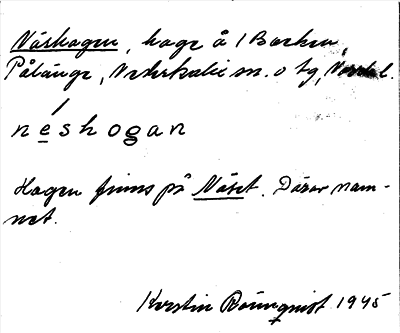 Näshagen, hage å 1 Backen,
Pålänge, Nederkalix sn. o tg, Nordal.
neshogan
Hagen finns på Näset. Därav nam-
net.
Kerstin Bännqvist 1945